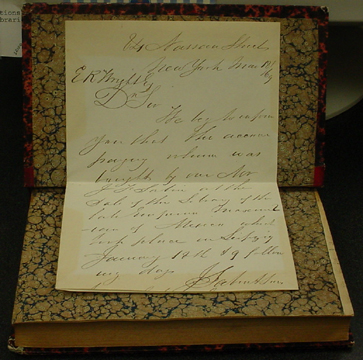 tions
brarie
84 Nassau Street
New York Mar 18
69
E R Wright
Dr Sir
We beg to inform
you that the accom
panying volume was
bought by our Mr
J F Sabin at the
Sale of the Library of the
late Emperor Maximil
-ian of Mexico which
took place in Leipzig
January 19th & 9 follow
ing days
J Sabin & Sons